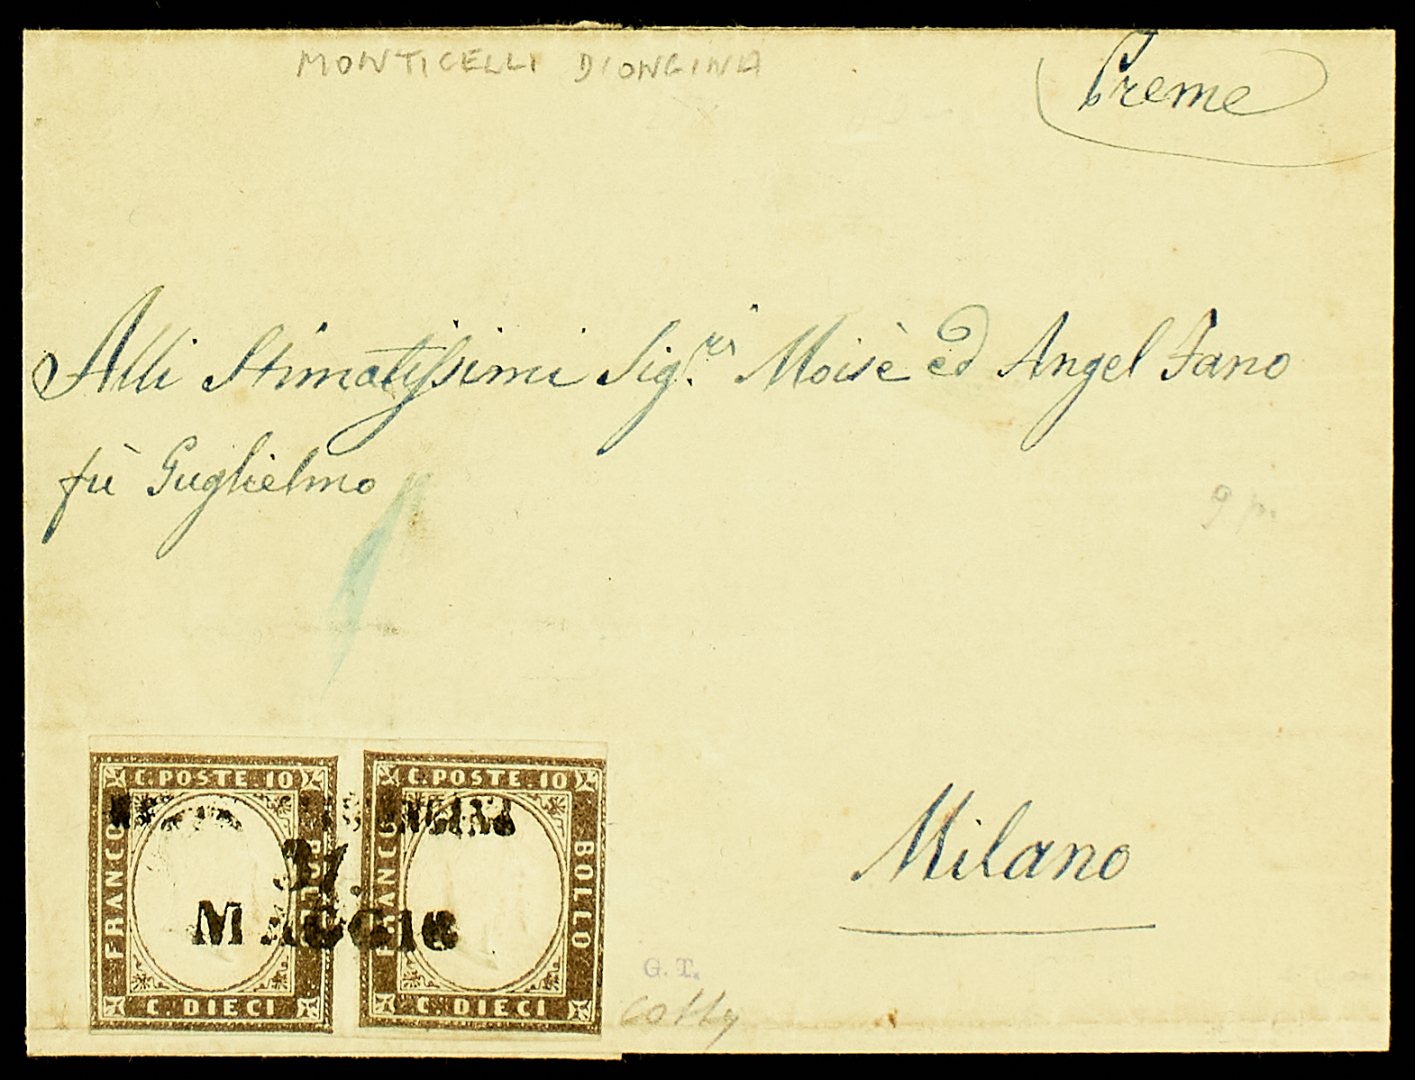 MONTICELLI DIONGINA
Preme
Alli Stimatissimi Sig.ri Moisè ed Angel Fano
fù Guglielmo
9 p.
Milano
C. POSTE 10
FRANCO
BOLLO
C. DIECI
C. POSTE 10
FRANCO
BOLLO
C. DIECI
31.
MAGGIO
G. T.